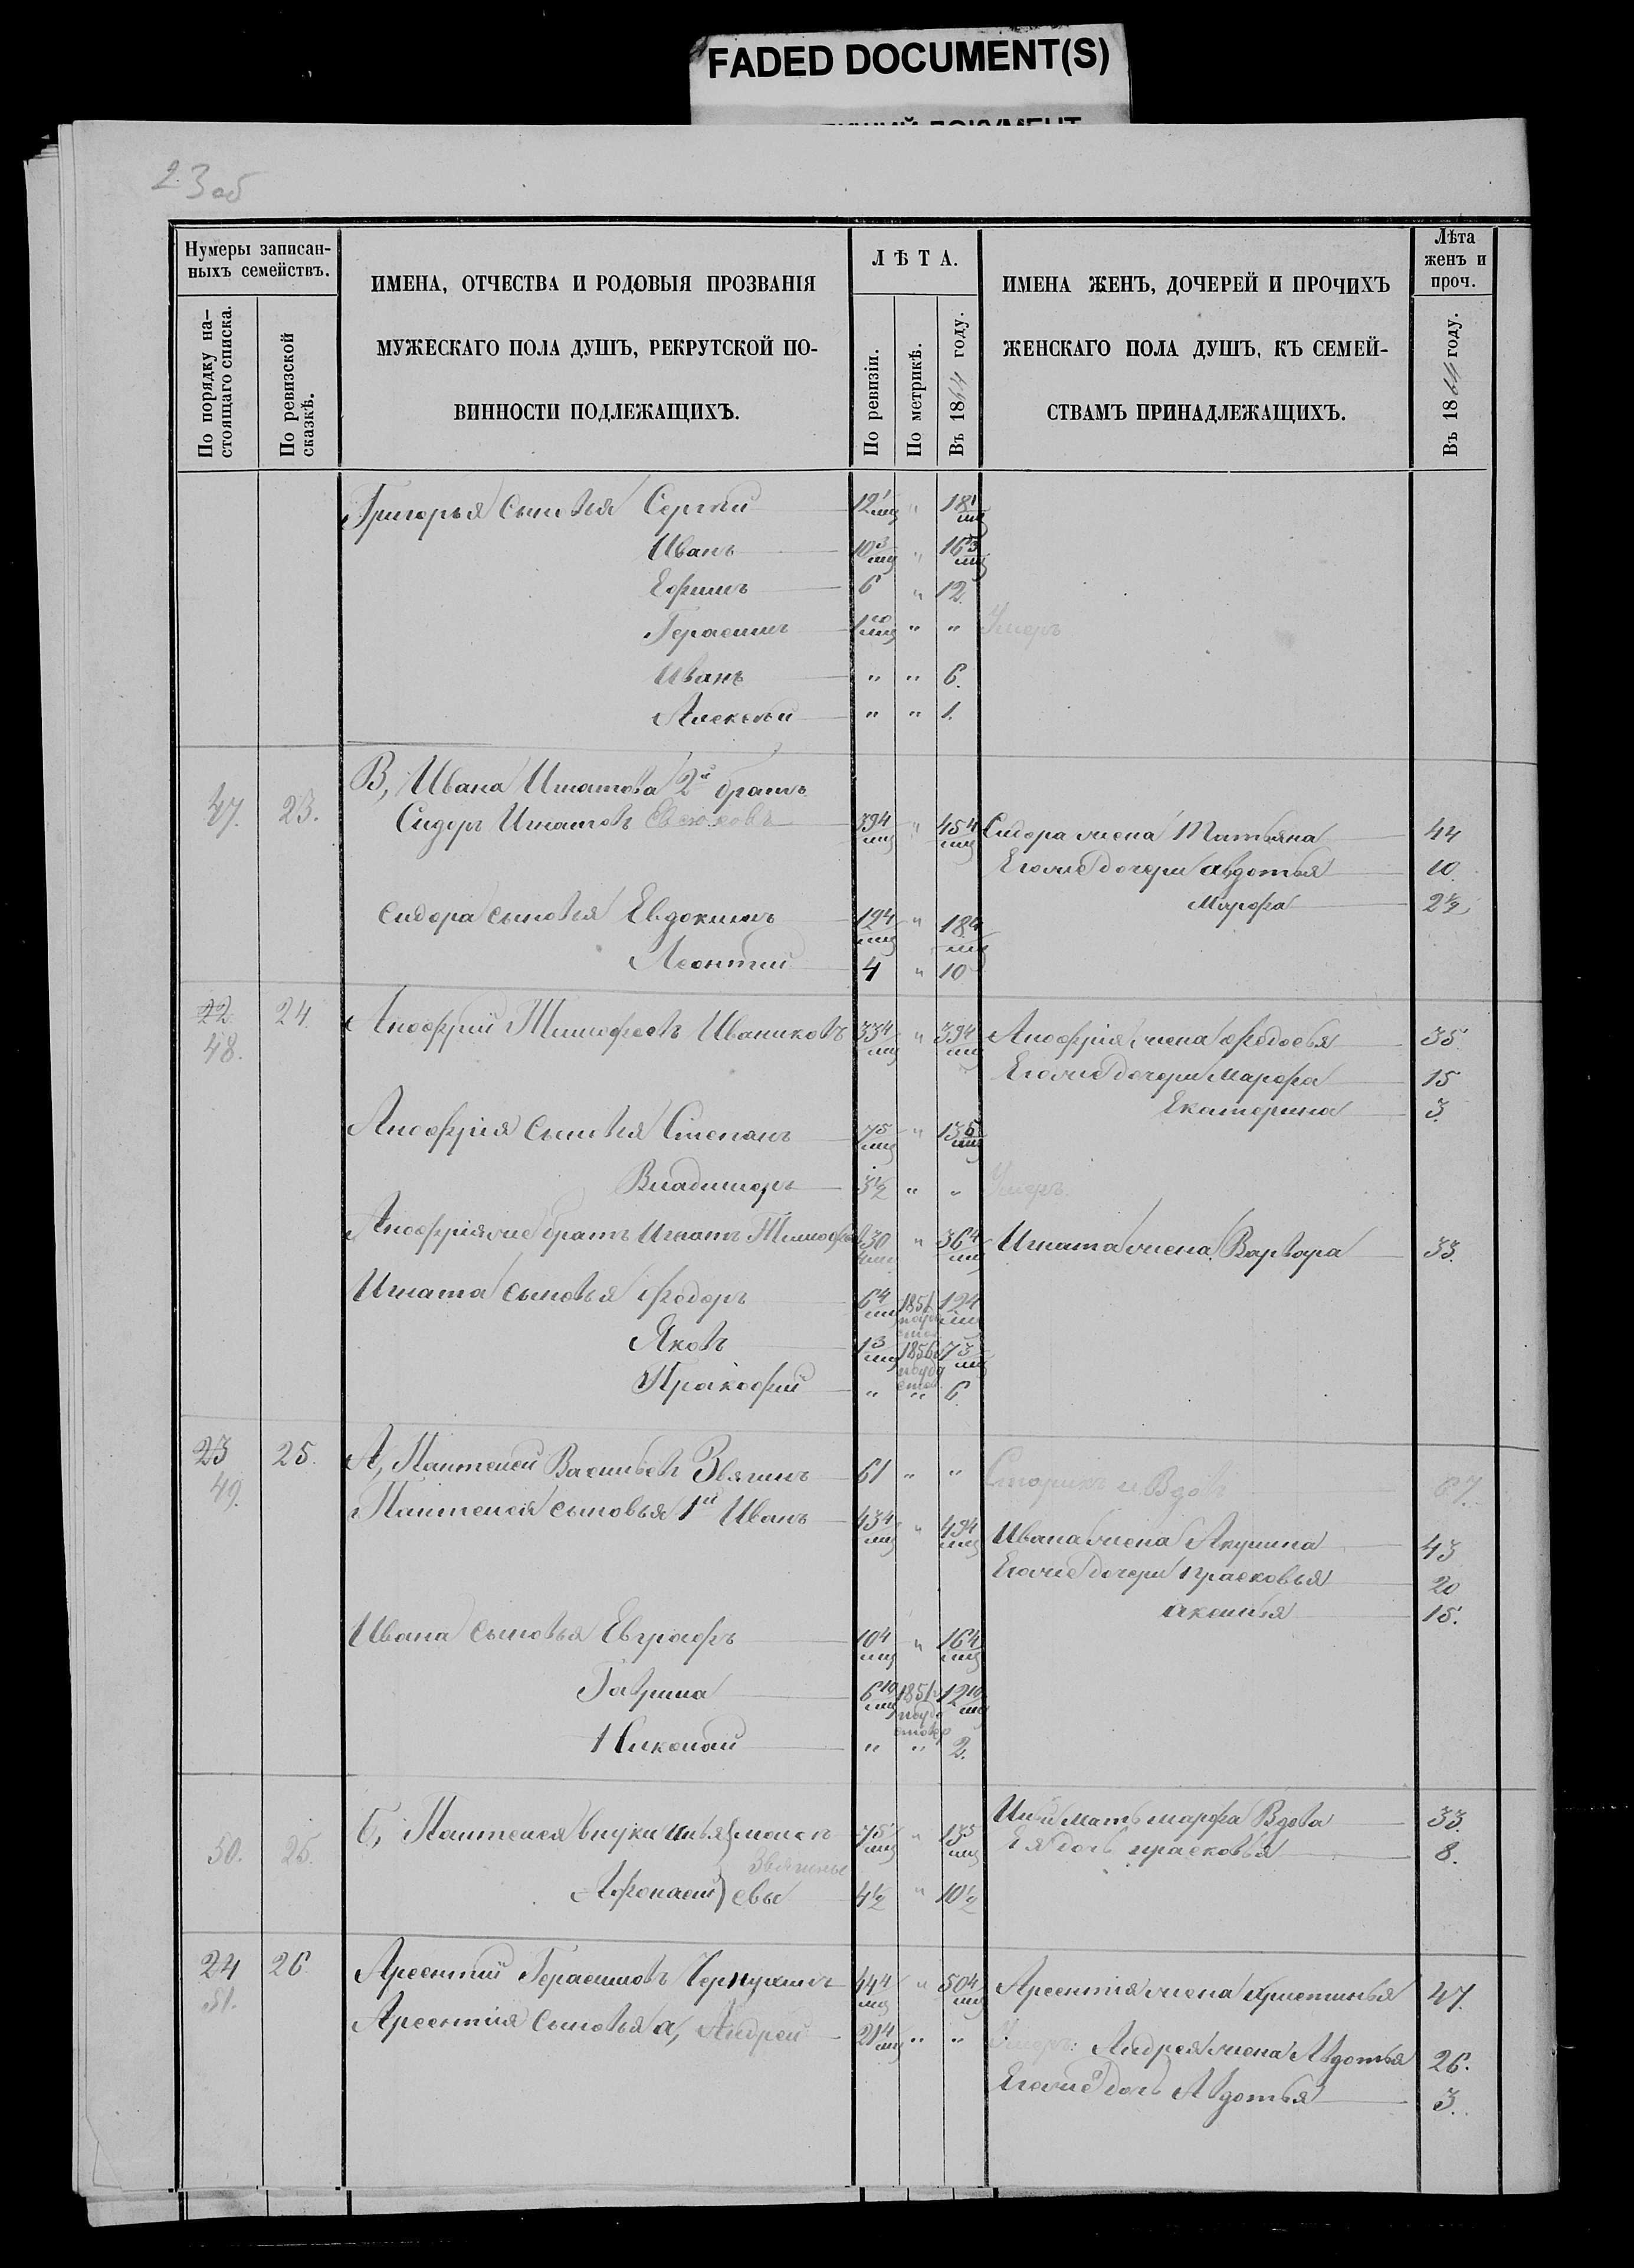 FADED DOCUMENT(S)
23 об
Нумеры записан-
ныхъ семействъ.
По порядку на-
стоящаго списка.
По ревизской
сказкѣ.
ИМЕНА, ОТЧЕСТВА И РОДОВЫЯ ПРОЗВАНІЯ
МУЖЕСКАГО ПОЛА ДУШЪ, РЕКРУТСКОЙ ПО-
ВИННОСТИ ПОДЛЕЖАЩИХЪ.
ЛѢТА.
По ревизіи.
По метрикѣ.
Въ 1864 году.
ИМЕНА ЖЕНЪ, ДОЧЕРЕЙ И ПРОЧИХЪ
ЖЕНСКАГО ПОЛА ДУШЪ, КЪ СЕМЕЙ-
СТВАМЪ ПРИНАДЛЕЖАЩИХЪ.
Лѣта
женъ и
проч.
Въ 1864 году.
Григорья сыновья Сергѣй 12 1 мц " 18 1 мц
Иванъ 10 3 мц " 16 3 мц
Ефимъ 6 " 12.
Герасимъ 1 10 мц " " Умеръ
Иванъ " " 6.
Алексѣй " " 1.
В, Ивана Игнатова 2й братъ
47. 23. Сидоръ Игнатовъ 39 4 мц " 45 4 мц Сидора жена Татьяна 44
Его же дочери Авдотья 10.
Марфа 2½
Сидора сыновья Евдокимъ 12 4 мц " 18 4 мц
Леонтий 4 " 10
22 24. Анофрий Тимофеевъ Иваниковъ 33 4 мц " 39 4 мц Анофрия жена Федосья 35.
48. Его же дочери Марфа 15
Екатерина 3.
Анофрія сыновья Степанъ 7 5 мц " 13 5 мц
Владимиръ 3½ " " Умеръ.
Анофрія же братъ Игнатъ Тимофеевъ 30 4 мц " 36 4 мц Игната жена Варвара 33.
Игната сыновья Федоръ 6 4 мц 1851 12 4 мц
Яковъ 1 3 мц 1856 7 3 мц
Прокофий " " 6
23 25. А, Пантелей Васильевъ Звягинъ 61 " " Старикъ и Вдовъ 67.
49. Пантелея сыновья 1й Иванъ 43 4 мц " 49 4 мц Ивана жена Акулина 43
Его же дочери Прасковья 20
Аксинья 15.
Ивана сыновья Евграфъ 10 4 мц " 16 4 мц
Гаврила 6 10 мц 1851 12 10 мц
Николай " " 2.
50. 25. Б, Пантелея внуки Ильи Моисей 7 5 мц " 13 5 мц Ихъ мать Марфа Вдова 33.
Звягины Ея дочь Прасковья 8.
Афонасій евы 4½ " 10½
24 26. Арсентий Герасимовъ 44 4 мц " 50 4 мц Арсентія жена Христинья 47.
51. Арсентія сыновья а, Андрей 21 4 мц " " Умеръ: Андрея жена Авдотья 26.
Его же дочь Авдотья 3.